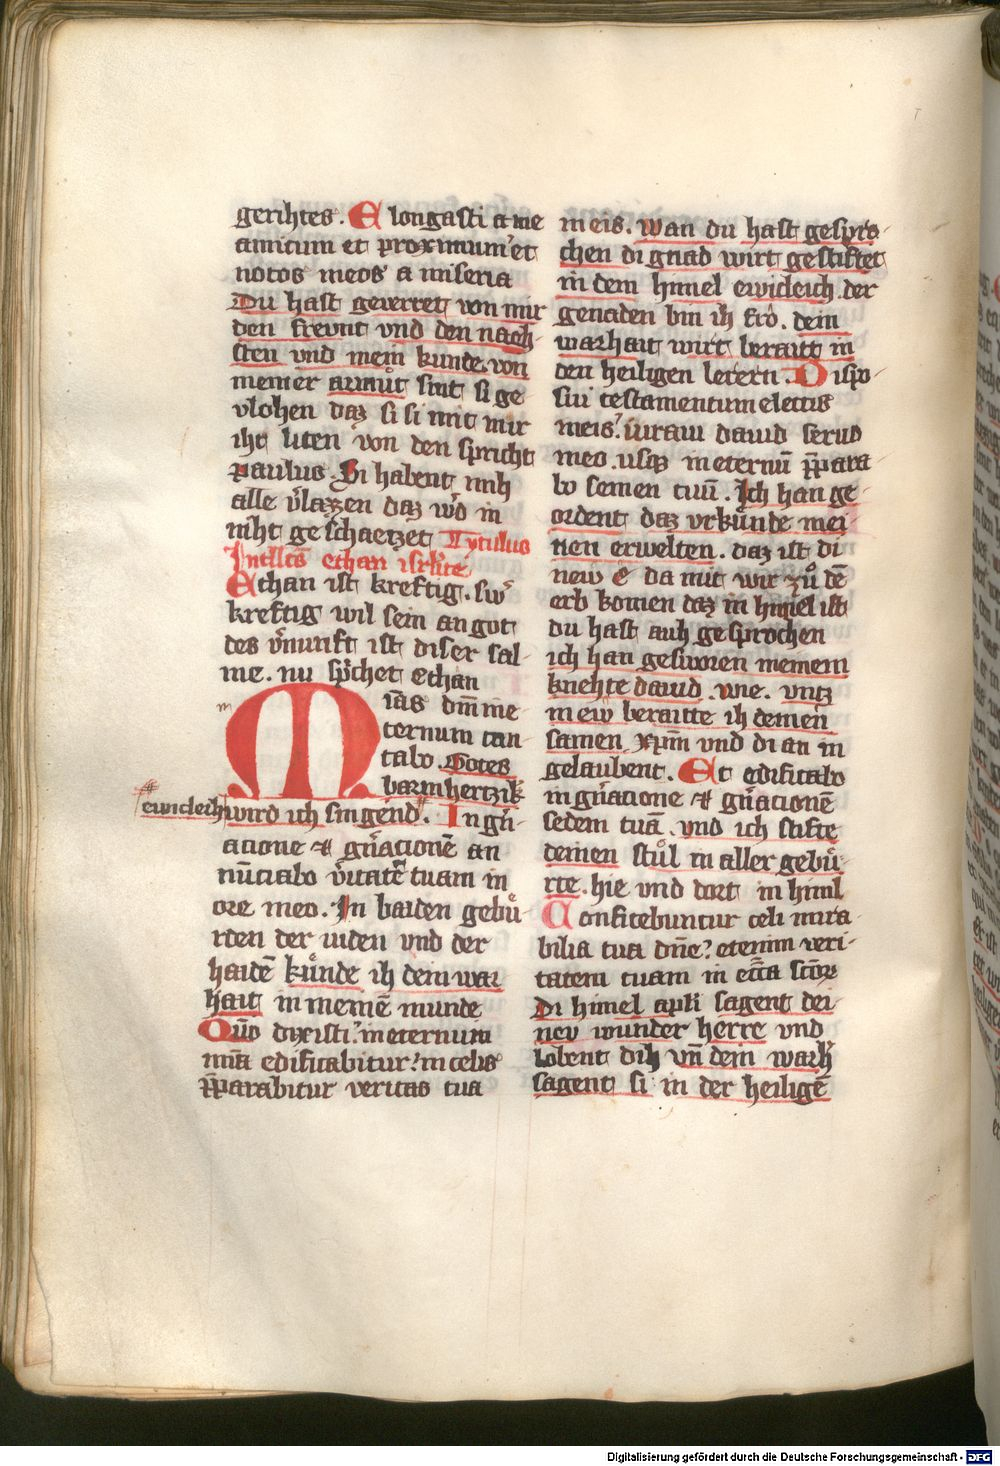 gerihtes. Elongasti a me
amicum et proximum et
notos meos a miseria
Du hast geverret von mir
den frevnt vnd den nach
sten vnd mein kunde. von
meiner armuͦt sint si ge
vlohen daz si si mit mir
iht liten von den spricht
paulus. Si habent mih
alle v̄lazzen daz wͦ in
niht geschaetzet Tytulus
Intellcs̄ ethan isrl'ite
Ethan ist kreftig. sw̾
kreftig wil sein an got
des v̄nunft ist diser sal
me. nu sp̾chet ethan
m Mias dm̄ in e
ternum can
tabo. Gotes
barmhertzik
ewicleich wird ich singend. In gn̄
acione et gn̄acionē an
nūciabo v̄itatē tuam in
ore meo. In baiden gebuͤ
rten der iuden vnd der
haidē kuͤnde ih dein war
hait in meinē munde
Qm̄ dixisti. in eternum
mīa edificabitur in celis
p̄parabitur veritas tua
meis. wan du hast gespro
chen di gnad wirt gestiftet
in dem himel ewicleich. der
genaden bin ih fro. dein
warhait wirt beraitt in
den heiligen lerern. Dispo
sui testamentum electis
meis. iuraui dauid seruo
meo. usq̄ in eternū p̄para
bo semen tuū. Ich han ge
ordent daz vrkuͤnde mei
nen erwelten. daz ist di
new e da mit wir zuͦ dē
erb komen daz in himel ist
du hast auh gesprochen
ich han gesworen meinem
knehte dauid. wie. vntz
in ew beraitte ih deinen
samen xp̄m vnd di an in
gelaubent. Et edificabo
in gn̄acione et gn̄acionē
sedem tuā. vnd ich stifte
deinen stuͦl in aller gebuͤr
rte. hie vnd dort in himl
Confitebuntur celi mira
bilia tua dn̄e. etenim veri
tatem tuam in ecc̄a sc̄or
Di himel apl̄i sagent dei
nev wunder herre vnd
lobent dih vn̄ dein warh̾
sagent si in der heiligē
Digitalisierung gefördert durch die Deutsche Forschungsgemeinschaft - DFG